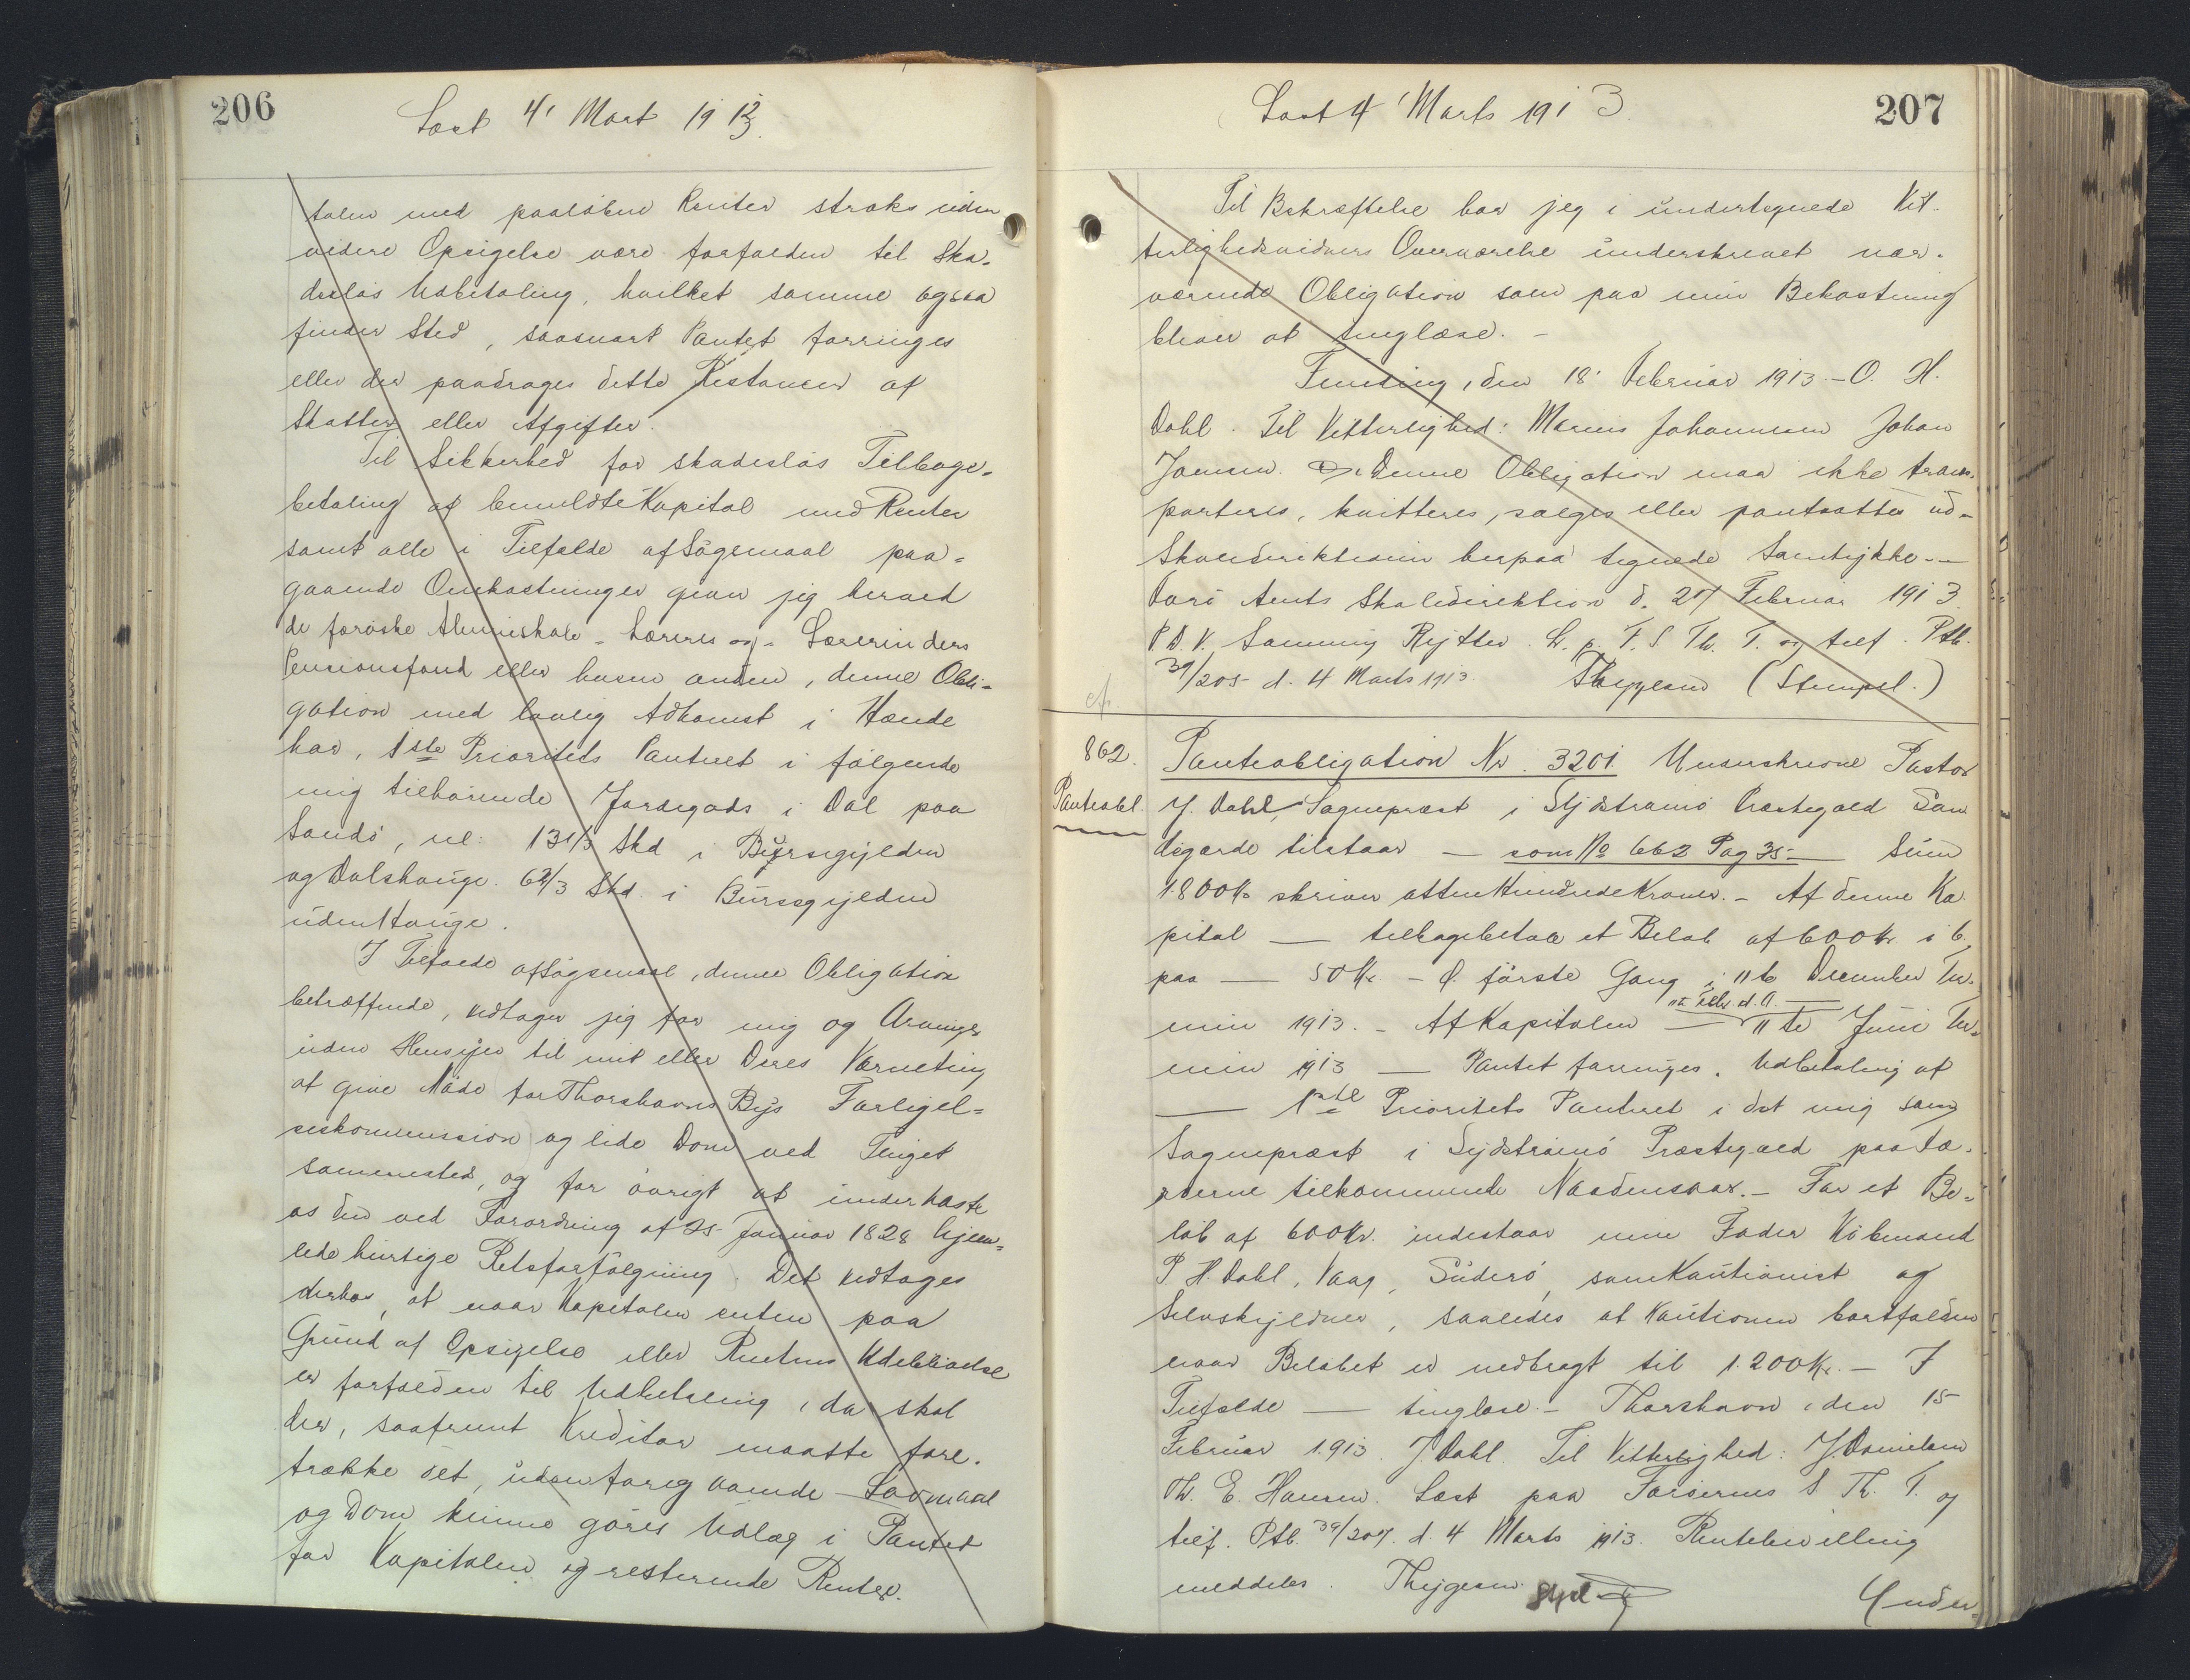 206
Læst 4' Mart 1913.
talen med paaløbne Renter straks uden
videre Opsigelse være forfalden til Ska-
desløs Udbetaling, hvilket samme ogsaa
finder Sted, saasnart Pantet forringes
eller der paadrages dette Restancer af
Skatter eller Afgifter.
Til Sikkerhed for skadesløs Tilbage-
betaling af bemeldte Kapital med Renter
samt alle i Tilfælde af Søgsmaal paa-
gaaende Omkostninger giver jeg herved
de færøske Almueskole-Læreres og -Lærerinders
Pensionsfond eller hvem anden, denne Obli-
gation med lovlig Adkomst i Hænde
har, 1ste Prioritets Panteret i følgende
mig tilhørende Jordegods i Dal paa
Sandø, nl: 13 1/3 Skd i
og Dalshauge. 6 2/3 Skd. i
uden Hauge.
I Tilfælde af Søgsmaal, denne Obligation
betræffende, vedtager jeg for mig og Arvinger
uden Hensyn til mit eller Deres Værneting
at give Møde for Thorshavns Bys Forligel-
seskommission og lide Dom ved Tinget
sammesteds, og for øvrigt at underkaste
os den ved Forordning af 25 Januar 1828 hjem-
lede hurtige Retsforfølgning. Det vedtages
derhos, at naar Kapitalen enten paa
Grund af Opsigelse eller Rentens Udeblivelse
er forfalden til Udbetaling, da skal
der, saafremt Kreditor maatte fore-
trække det, uden foregaaende Lovmaal
og Dom kunne gøres Udlæg i Pantet
for Kapitalen og resterende Renter.
Læst 4 'Marts 1913.
207
Til Bekræftelse har jeg i undertegnede Vit-
terlighedsvidners Overværelse underskrevet nær-
værende Obligation som paa min Bekostning
bliver at tinglæse. -
den 18' Februar 1913 - O. H.
Dahl. Til Vitterlighed: Marius Johannesen Johan
Joensen. Denne Obligation maa ikke trans-
porteres, kvitteres, sælges eller pantsættes ud-
Skoledirektionens herpaa tegnede Samtykke. -
Færø Amts Skoledirektion d. 27 Februar 1913.
P.D.V. Samming Rytter. L. p. F. S. Th. T. og tilf. Ptb.
39/205 d. 4 Marts 1913. Thygesen (Stempel.)
862.
Panteobl.
Panteobligation Nr. 3201. Underskrevne Pastor
J. Dahl, Sognepræst i Sydstrømø Præstegæld San
degærde tilstaar — som No 662 Pag 35 — Sum
1800 Kr skriver atten Hundrede Kroner. - Af denne Ka
pital — tilbagebetale et Beløb af 600 Kr i 6
paa — 50 Kr. - d. første Gang i 11te December Ter-
min 1913. - Af Kapitalen — 11te Juni Ter-
11te Febr. d. A. —
min 1913 — Pantet forringes. Udbetaling af
— 1ste Prioritets Panteret i det mig som
Sognepræst i Sydstrømø Præstegæld paa Fæ-
røerne tilkommende Naadensaar. - For et Be-
løb af 600 Kr. indestaar min Fader Købmand
P. H. Dahl, Vaag, Suderø, som Kautionist og
Selvskyldner, saaledes at Kautionen bortfalder
naar Beløbet er nedbragt til 1.200 Kr. - I
Tilfælde — tinglæse. - Thorshavn, den 15
Februar 1913. J. Dahl. Til Vitterlighed: J. Danielsen
Th. E. Hansen. Læst paa Færøernes S. Th. T. og
tilf. Ptb. 39/207. d. 4 Marts 1913. Rentebevilling
meddeles. Thygesen.
Under-